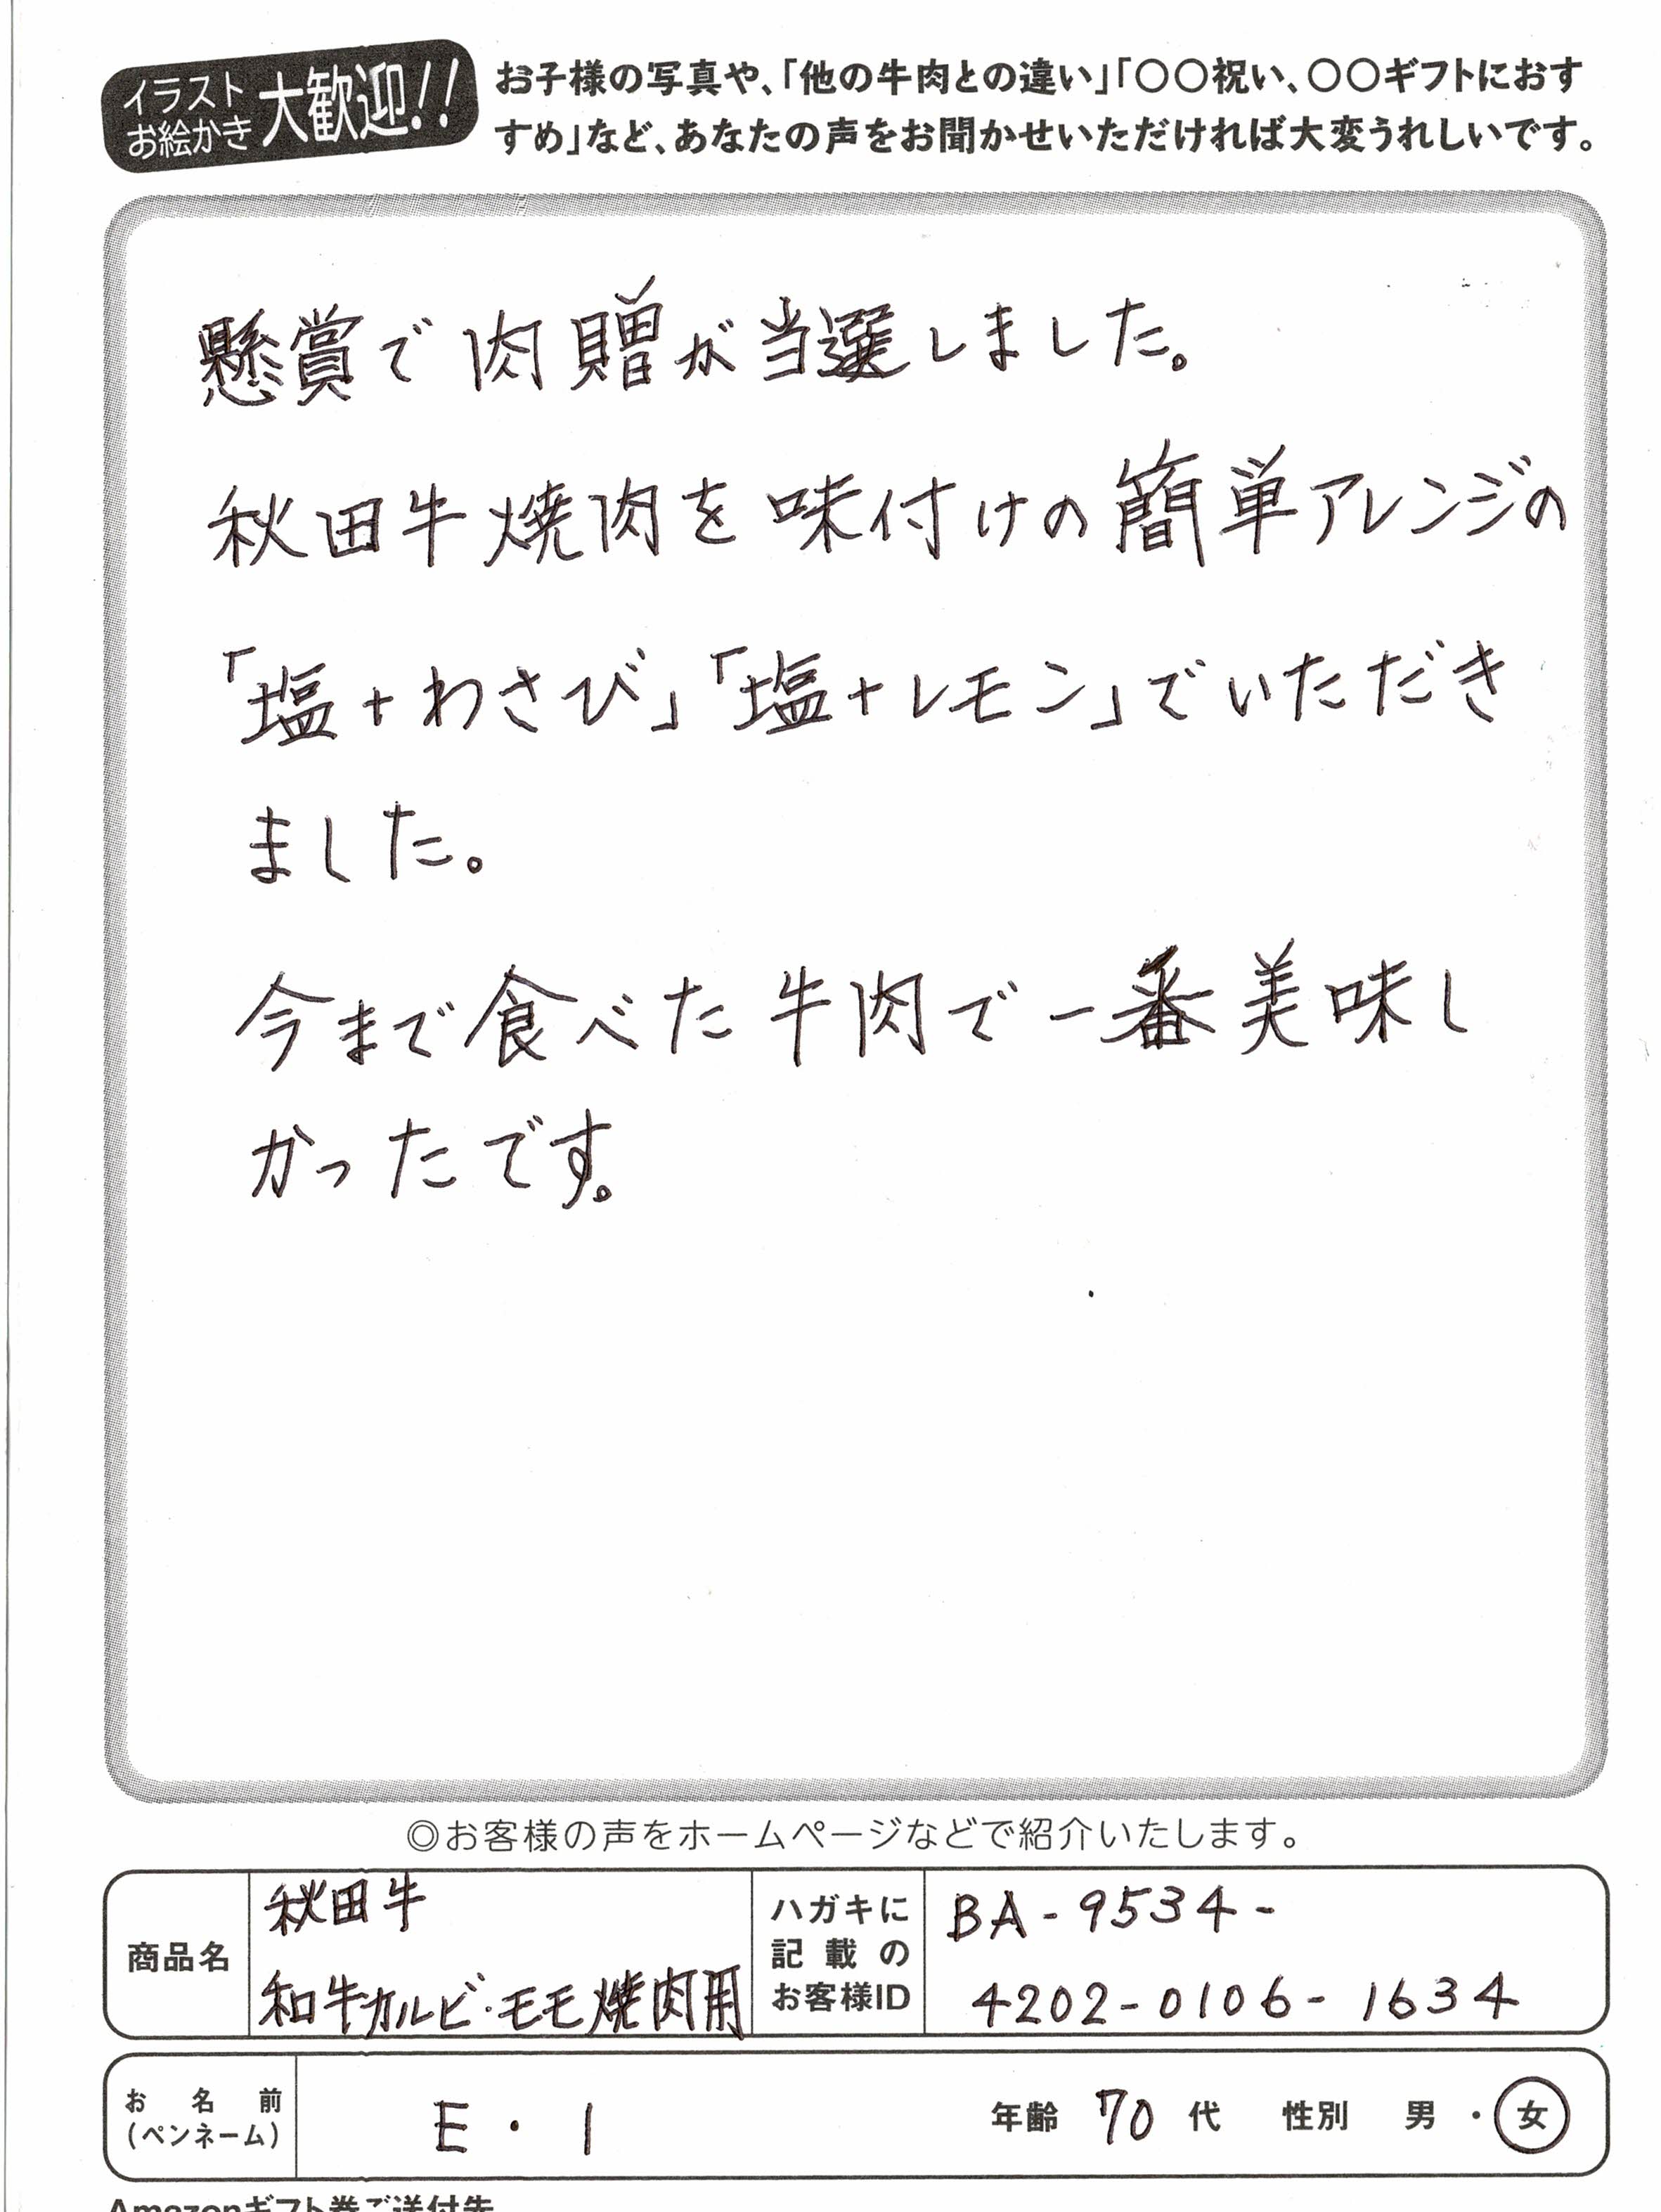 イラスト
お絵かき
大歓迎!!
お子様の写真や、「他の牛肉との違い」「〇〇祝い、〇〇ギフトにおす
すめ」など、あなたの声をお聞かせいただければ大変うれしいです。
懸賞で肉贈が当選しました。
秋田牛焼肉を味付けの簡単アレンジの
「塩+わさび」「塩+レモン」でいただき
ました。
今まで食べた牛肉で一番美味し
かったです。
◎お客様の声をホームページなどで紹介いたします。
商品名
秋田牛
和牛カルビ・モモ焼肉用
ハガキに
記載の
お客様ID
BA-9534-
4202-0106-1634
お名前
(ペンネーム)
E・I
年齢 70代 性別 男・女
Amazonギフト券ご送付先